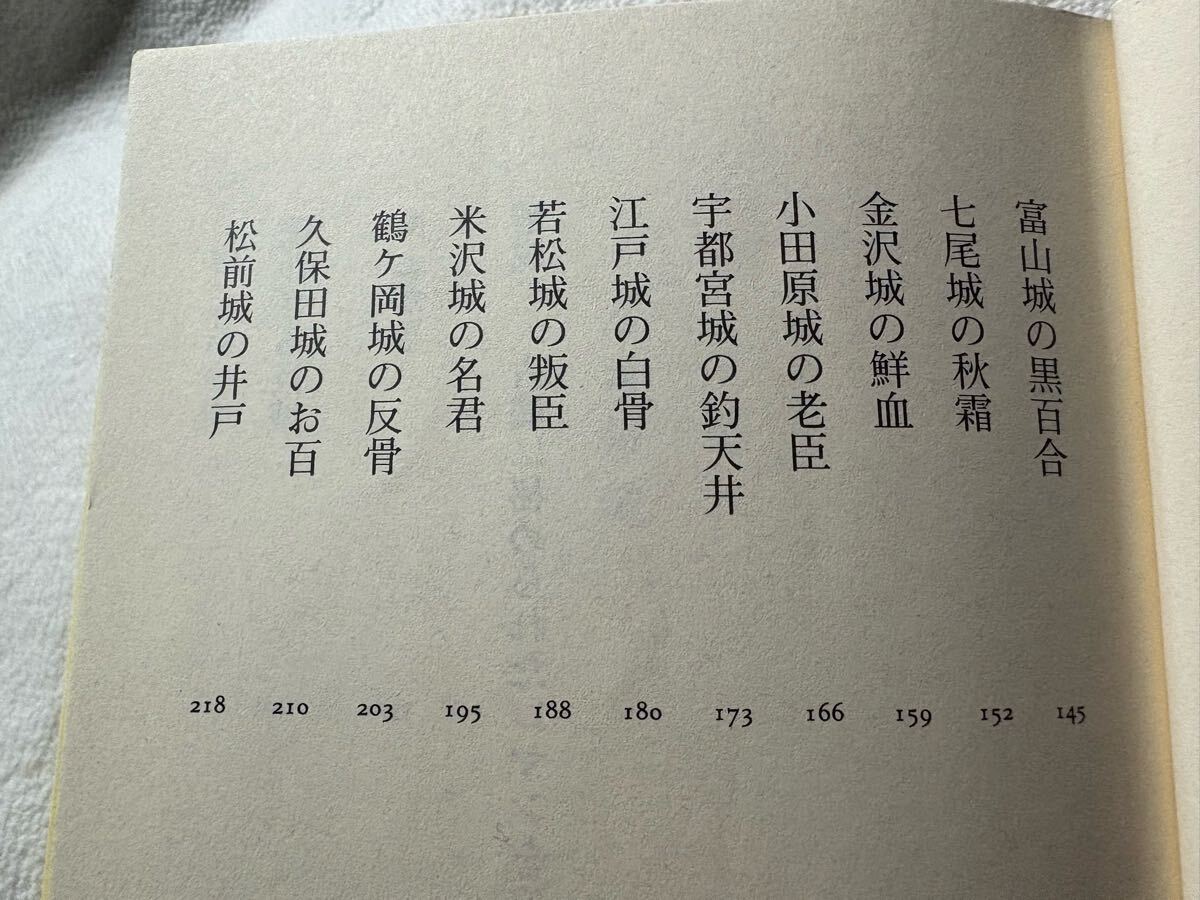 富山城の黒百合 145
七尾城の秋霜 152
金沢城の鮮血 159
小田原城の老臣 166
宇都宮城の釣天井 173
江戸城の白骨 180
若松城の叛臣 188
米沢城の名君 195
鶴ケ岡城の反骨 203
久保田城のお百 210
松前城の井戸 218